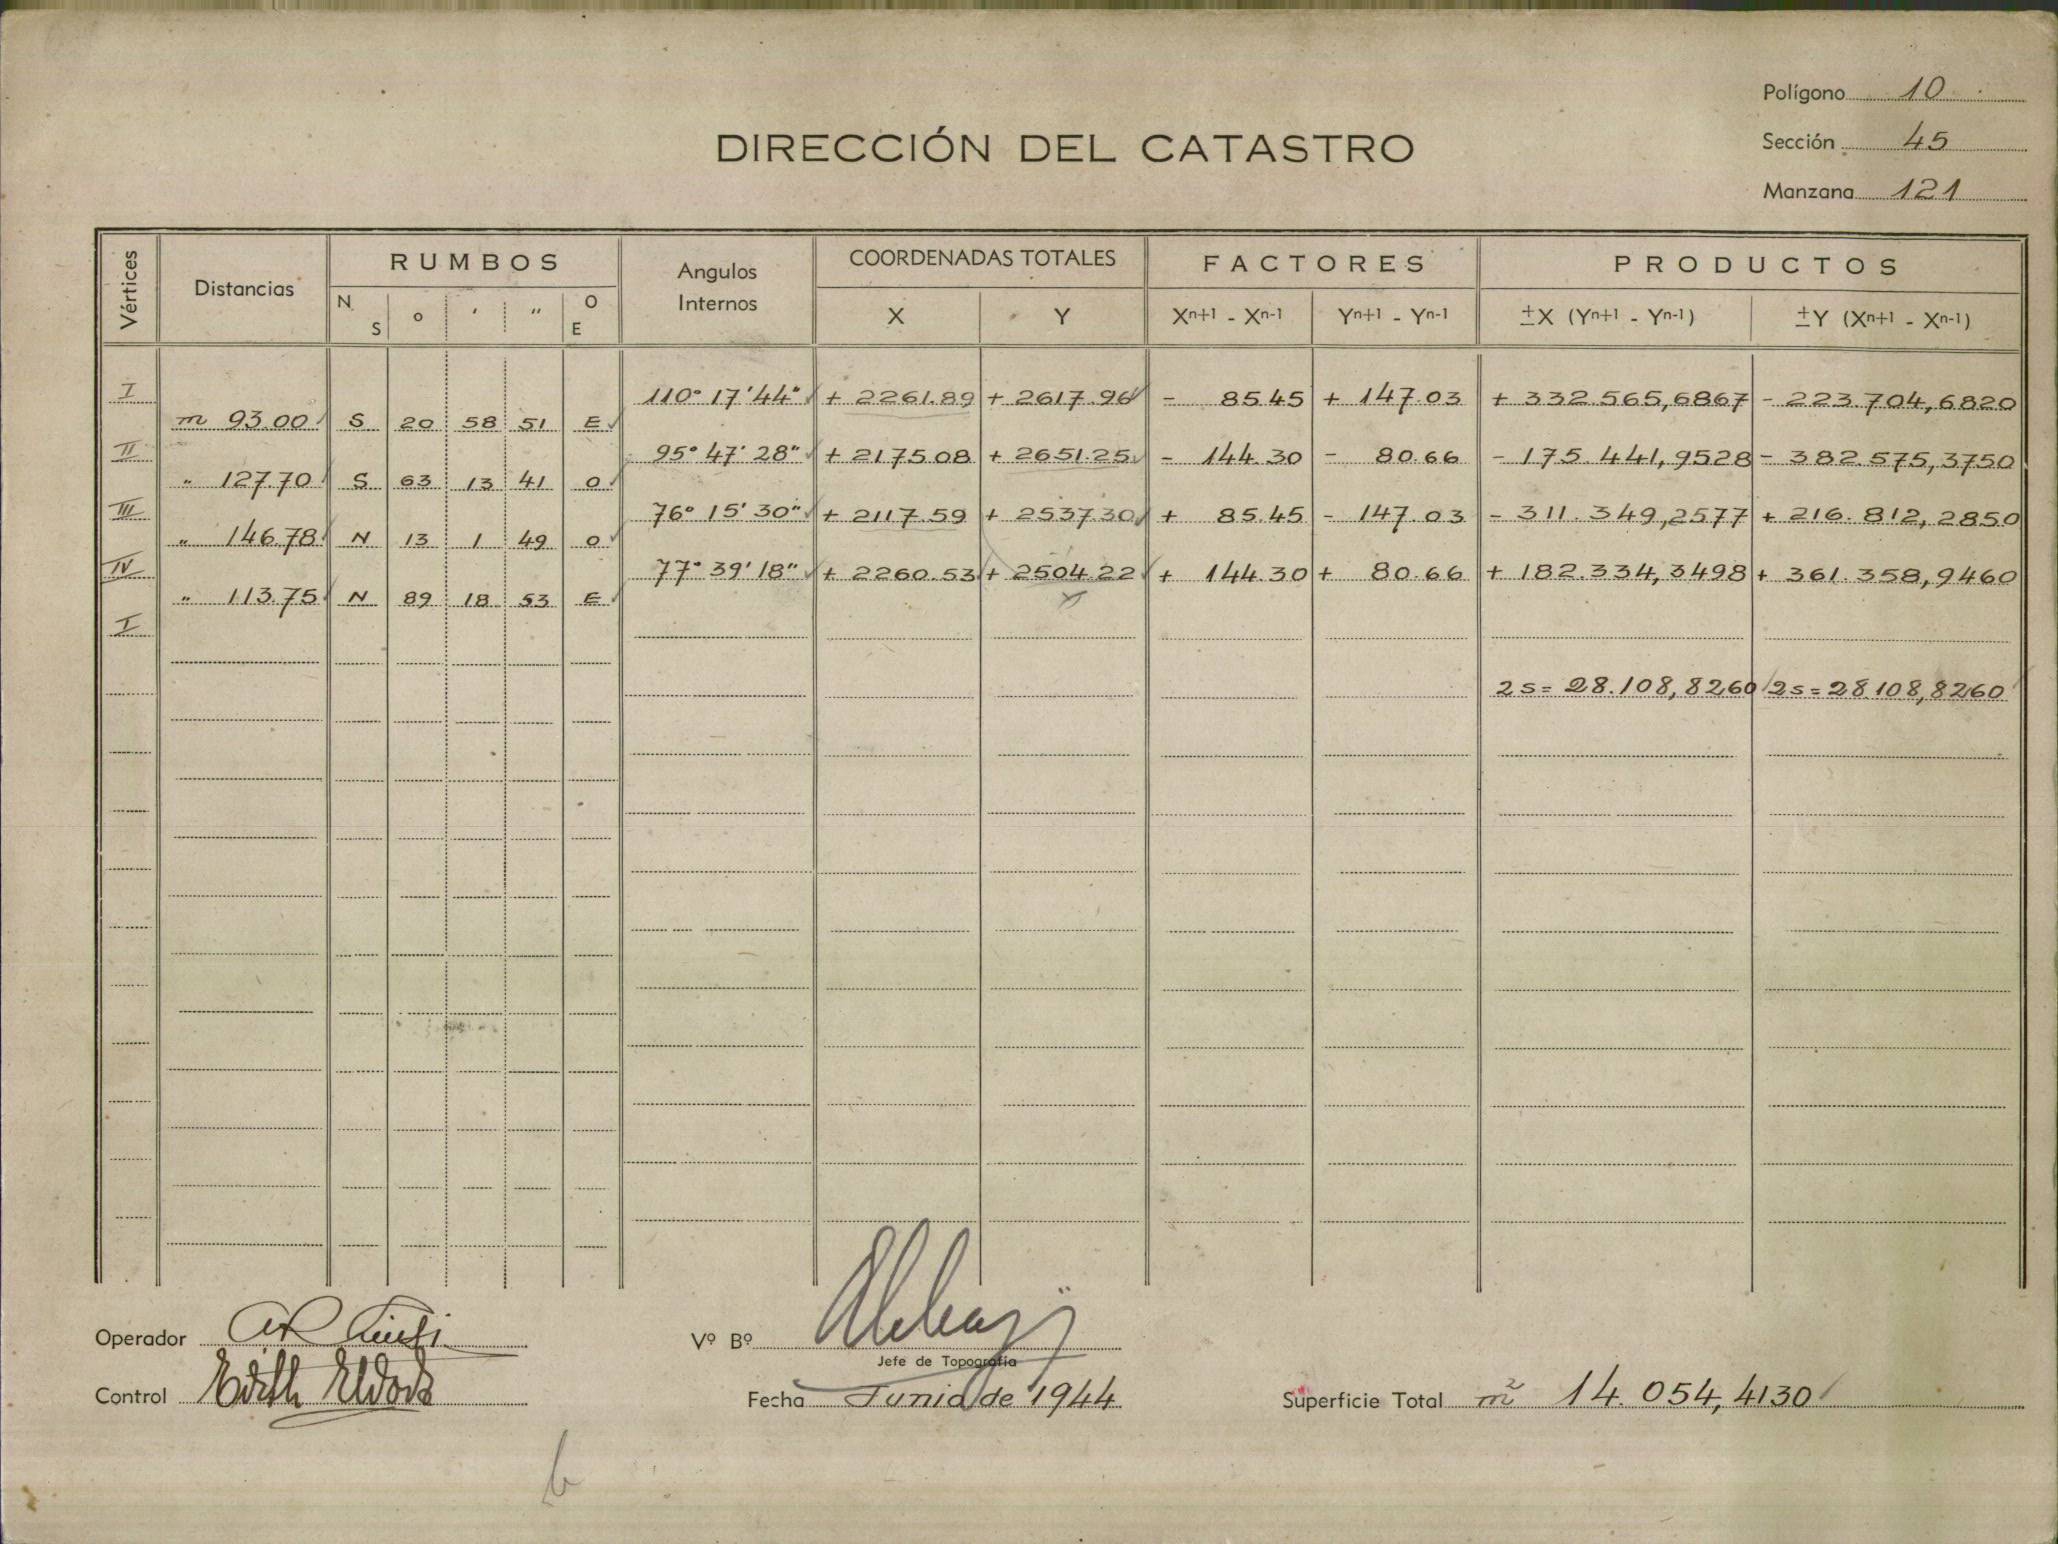 Polígono 10
DIRECCIÓN DEL CATASTRO
Sección 45
Manzana 121
Vértices Distancias RUMBOS Angulos Internos COORDENADAS TOTALES FACTORES PRODUCTOS
N S o ′ ″ O E X Y Xⁿ⁺¹ - Xⁿ⁻¹ Yⁿ⁺¹ - Yⁿ⁻¹ ±X (Yⁿ⁺¹ - Yⁿ⁻¹) ±Y (Xⁿ⁺¹ - Xⁿ⁻¹)
I 110° 17' 44" + 2261.89 + 2617.96 - 85.45 + 147.03 + 332.565,6867 - 223.704,6820
m 93.00 S 20 58 51 E
II 95° 47' 28" + 2175.08 + 2651.25 - 144.30 - 80.66 - 175.441,9528 - 382.575,3750
" 127.70 S 63 13 41 O
III 76° 15' 30" + 2117.59 + 2537.30 + 85.45 - 147.03 - 311.349,2577 + 216.812,2850
" 146.78 N 13 1 49 O
IV 77° 39' 18" + 2260.53 + 2504.22 + 144.30 + 80.66 + 182.334,3498 + 361.358,9460
" 113.75 N 89 18 53 E
I
2s = 28.108,8260 2s = 28.108,8260
Operador
Vº Bº
Jefe de Topografía
Control Edith
Fecha Junio de 1944
Superficie Total m² 14.054,4130